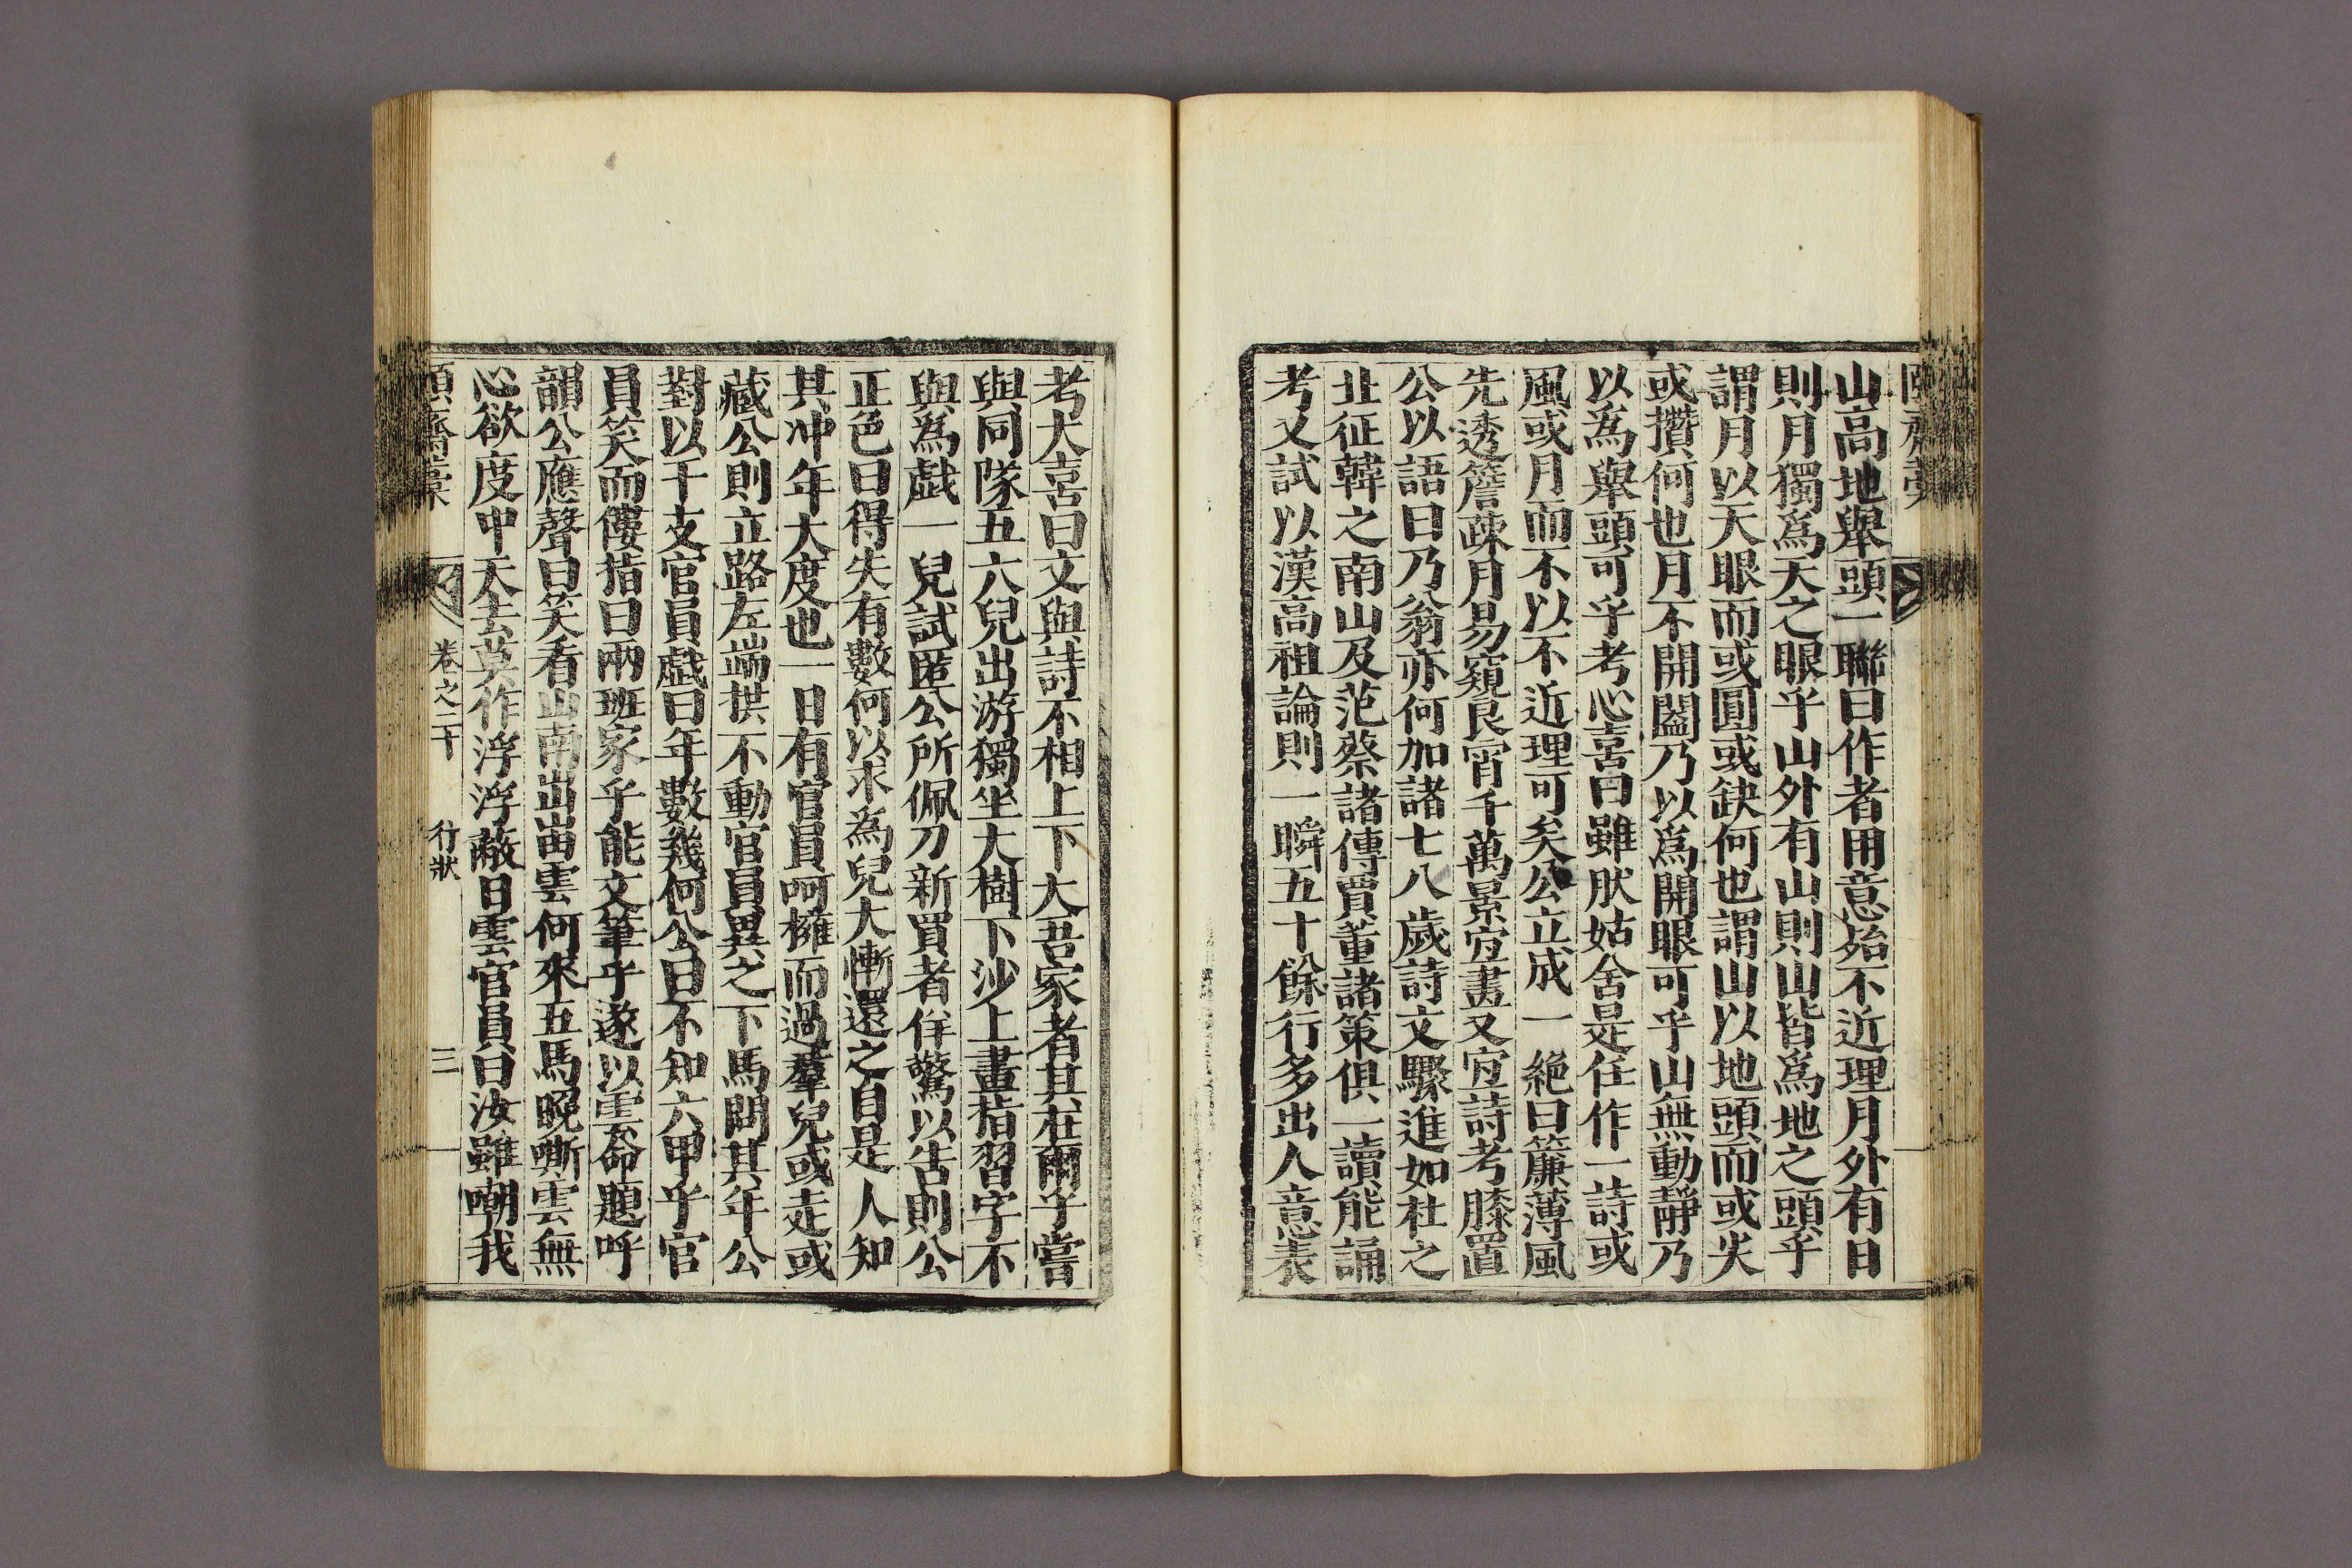 山高地擧頭一聯曰作者用意殆不近理月外有日
則月獨爲天之眼乎山外有山則山皆爲地之頭乎
謂月以天眼而或圓或缺何也謂山以地頭而或尖
或攢何也月不開闔乃以爲開眼可乎山無動靜乃
以爲擧頭可乎考心喜曰雖肰姑舍是任作一詩或
風或月而不以不近理可矣公立成一絶曰簾薄風
先透簷疎月易窺良宵千萬景宜畫又宜詩考膝置
公以語曰乃翁亦何加諸七八歲詩文驟進如杜之
北征韓之南山及范蔡諸傳賈董諸策俱一讀能誦
考又試以漢高祖論則一瞬五十餘行多出人意表
考大喜曰文與詩不相上下大吾家者其在爾乎嘗
與同隊五六兒出游獨坐大樹下沙上畫指習字不
與為戱一兒試匿公所佩刀新買者佯驚以告則公
正色曰得失有數何以求為兒大慚還之自是人知
其冲年大度也一日有官員呵擁而過羣兒或走或
藏公則立路左端拱不動官員異之下馬問其年公
對以干支官員戱曰年數幾何公曰不知六甲乎官
員笑而僂指曰兩班家乎能文筆乎遂以雲命題呼
韻公應聲曰笑看山南出岀雲何來五馬晚嘶雲無
心欲度中天去莫作浮浮蔽日雲官員曰汝雖嘲我
頤齋藁 卷之二十 行狀 三